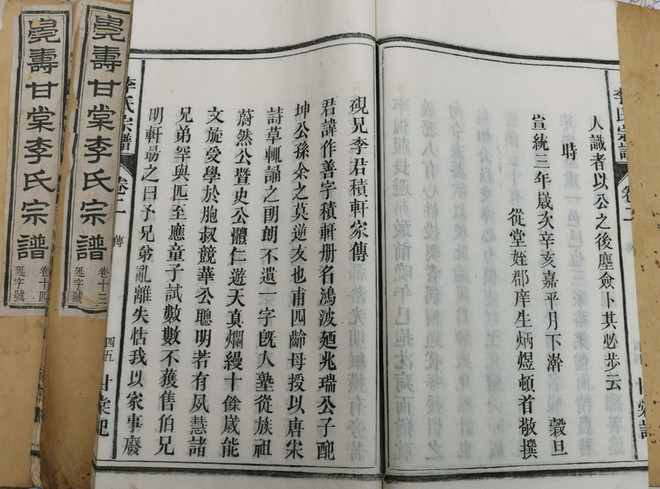 李氏宗譜
卷二
人識者以公之後塵僉卜其必步云
時
宣統三年歲次辛亥嘉平月下澣 穀旦
從堂姪郡庠生炳煜頓首敬撰
硯兄李君積軒家傳
君諱作善字積軒册名鴻波廼兆瑞公子配
坤公孫余之莫逆友也甫四齡母授以唐宋
詩草輒誦之朗朗不遺一字旣入塾從族祖
蔚然公暨史公體仁遊天真爛縵十餘歲能
文旋受學於胞叔競華公聰明若有夙慧諸
兄弟罕與匹至應童子試數數不獲售伯兄
明軒勗之曰予兄弟亂離失怙我以家事廢
李氏宗譜
卷二
傳
四五
甘棠
壽甘棠李氏宗譜
卷十三
延字號
壽甘棠李氏宗譜
卷十四
延字號